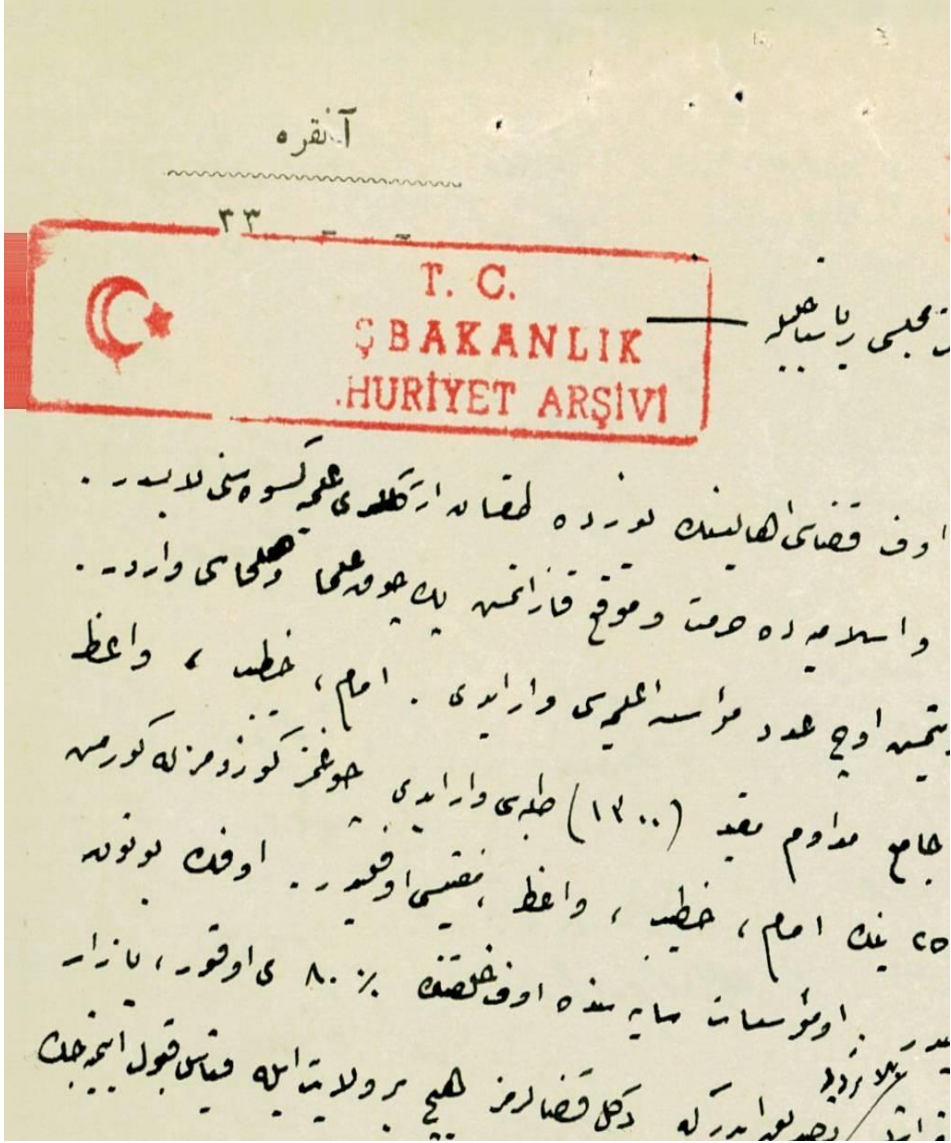 آنقره
٣٣ - -
T. C.
ŞBAKANLIK
.HURİYET ARŞİVİ
مجلسی ریاستنه
اوف قضاسی اهالیسنك یوزده طقسان ارککلری علمیه کسوه سنی لابسدر .
واسلامیه ده حرمت وموقع قازانمش پك چوق علما وار در .
یتمش اوچ عدد مؤسسه علمیه سی وار ایدی . امام ، خطیب ، واعظ
جامع مداوم مقید (١٣٠٠) طلبه سی وار ایدی چوغمز کوزومزله کورمش
٢٥ ینك امام ، خطیب ، واعظ ، مفتیسی اوفلیدر . اوفك بوتون
اومؤسسات سایه سنده اوف خلقنك ٪ ٨٠ ی اوقور ، یازار
دکل قضالرمز هیچ بر ولایت ایله قیاس قبول ایتمیه جك